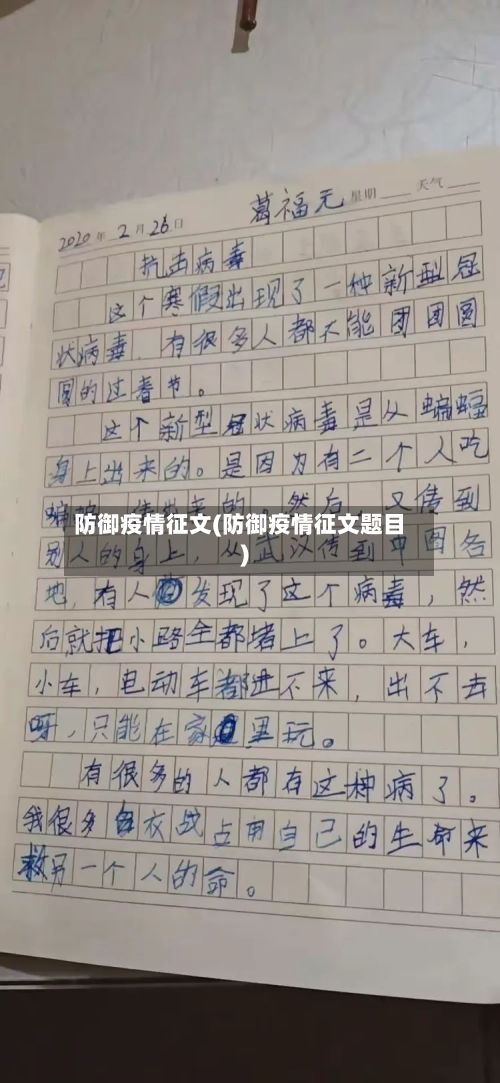 葛福元 星期 天气
2020年2月26日
抗击病毒
这个寒假出现了一种新型冠
状病毒.有很多人都不能团团圆
圆的过春节。
这个新型冠状病毒是从蝙蝠
身上出来的。是因为有二个人吃
的 然后,又传到
防御疫情征文(防御疫情征文题目
)
别人的身上,从武汉传到中国各
地,有人发现了这个病毒,然
后就把小路全都堵上了。大车,
小车,电动车都进不来,出不去
呀,只能在家里玩。
有很多的人都有这种病了。
我很多 衣战占用自己的生命来
救另一个人的命。